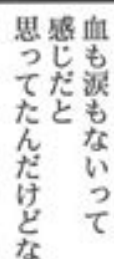 血も涙もないって
感じだと
思ってたんだけどな